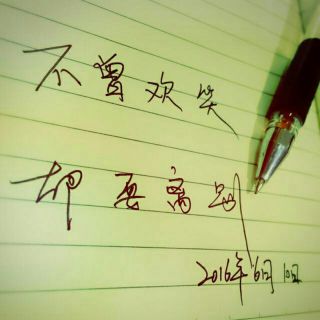 不曾欢笑
却要离别
2016年6月10日